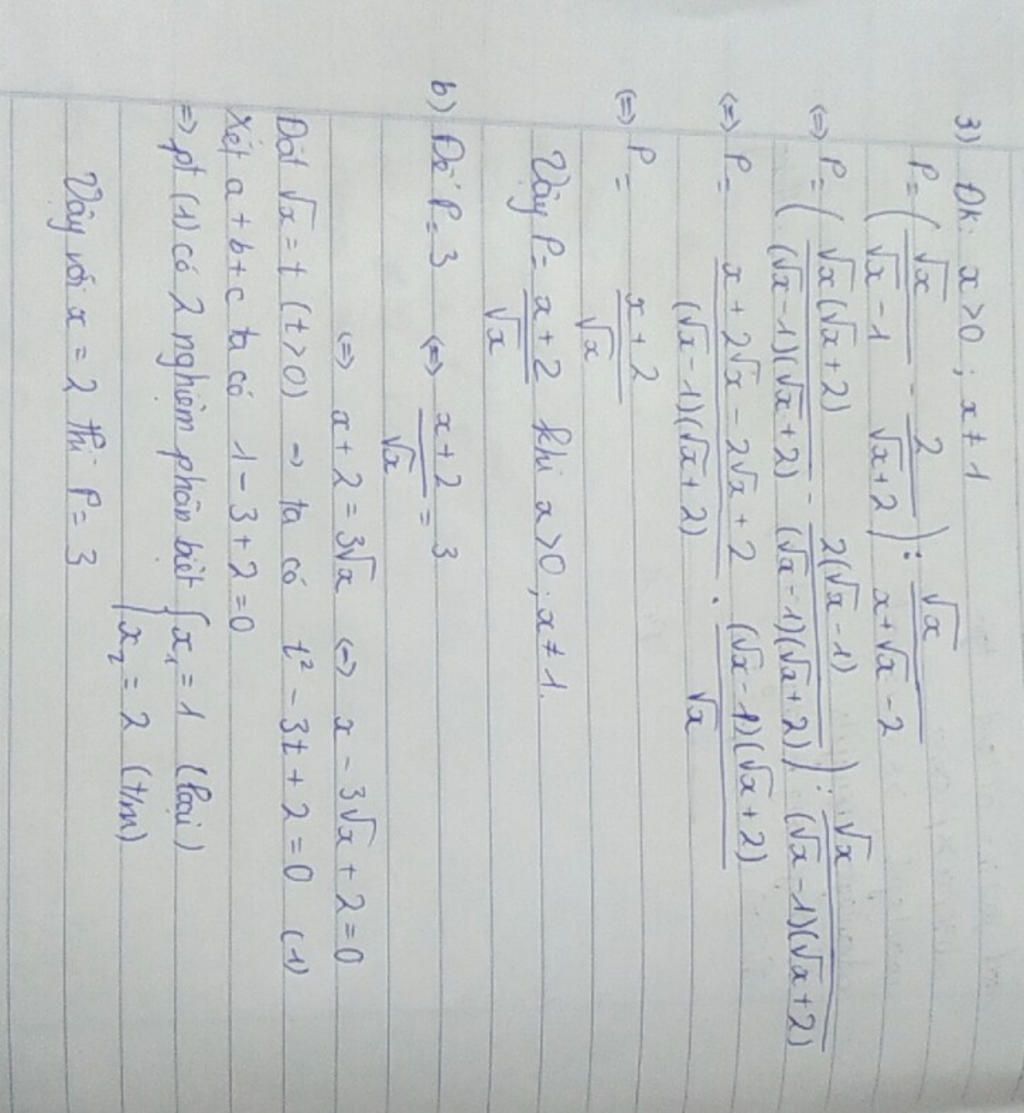 3) Đk: x>0 ; x ≠ 1
P = ( √x/(√x - 1) - 2/(√x + 2) ) : √x/(x + √x - 2)
(=) P = ( √x(√x + 2)/((√x - 1)(√x + 2)) - 2(√x - 1)/((√x - 1)(√x + 2)) ) : √x/((√x - 1)(√x + 2))
(=) P = (x + 2√x - 2√x + 2)/((√x - 1)(√x + 2)) . ((√x - 1)(√x + 2))/√x
(=) P = (x + 2)/√x
Vậy P = (x + 2)/√x khi x > 0 ; x ≠ 1.
b) Để P = 3 (=) (x + 2)/√x = 3
(=) x + 2 = 3√x (=) x - 3√x + 2 = 0
Đặt √x = t (t>0) => ta có t² - 3t + 2 = 0 (1)
Xét a + b + c ta có 1 - 3 + 2 = 0
=> pt (1) có 2 nghiệm phân biệt { x₁ = 1 (loại)
x₂ = 2 (t/m)
Vậy với x = 2 thì P = 3